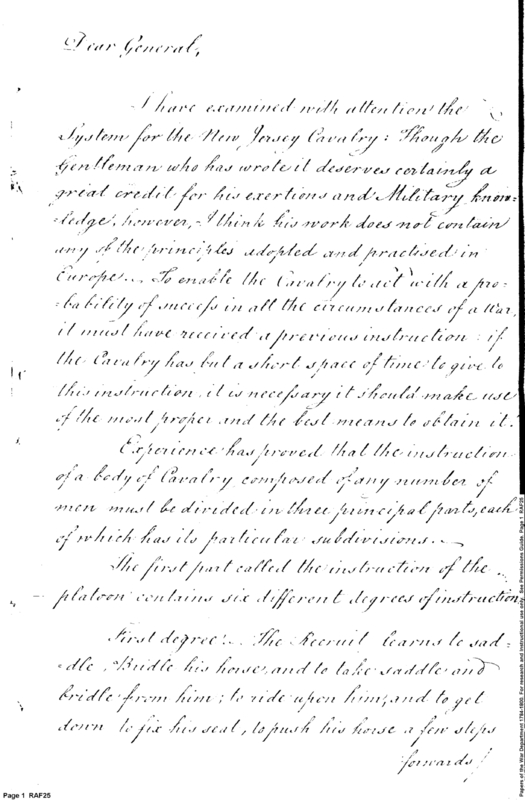 Dear General,
I have examined with attention the
System for the New Jersey Cavalry: Though the
Gentleman who has wrote it deserves certainly a
great credit for his exertions and Military know=
ledge, however, I think his work does not contain
any of the principles adopted and practised in
Europe... To enable the Cavalry to act with a pro=
=bability of success in all the circumstances of a War,
it must have received a previous instruction: if
the Cavalry has but a short space of time to give to
this instruction, it is necessary it should make use
of the most proper and the best means to obtain it.
Experience has proved that the instruction
of a body of Cavalry composed of any number of
men must be divided in three principal parts, each
of which has its particular subdivisions.
The first part called the instruction of the
platoon contains six different degrees of instruction
First degree... The Recruit learns to sad=
=dle, Bridle his horse, and to take saddle and
bridle from him; to ride upon him, and to get
down to fix his seat, to push his horse a few steps
forwards/
Page 1 RAF25
Papers of the War Department 1784-1800. For research and instructional use only. See Permissions Guide. Page 1 RAF25